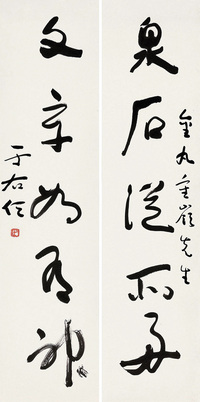 泉石從所好
金丸重嶺先生
文章如有神
于右任